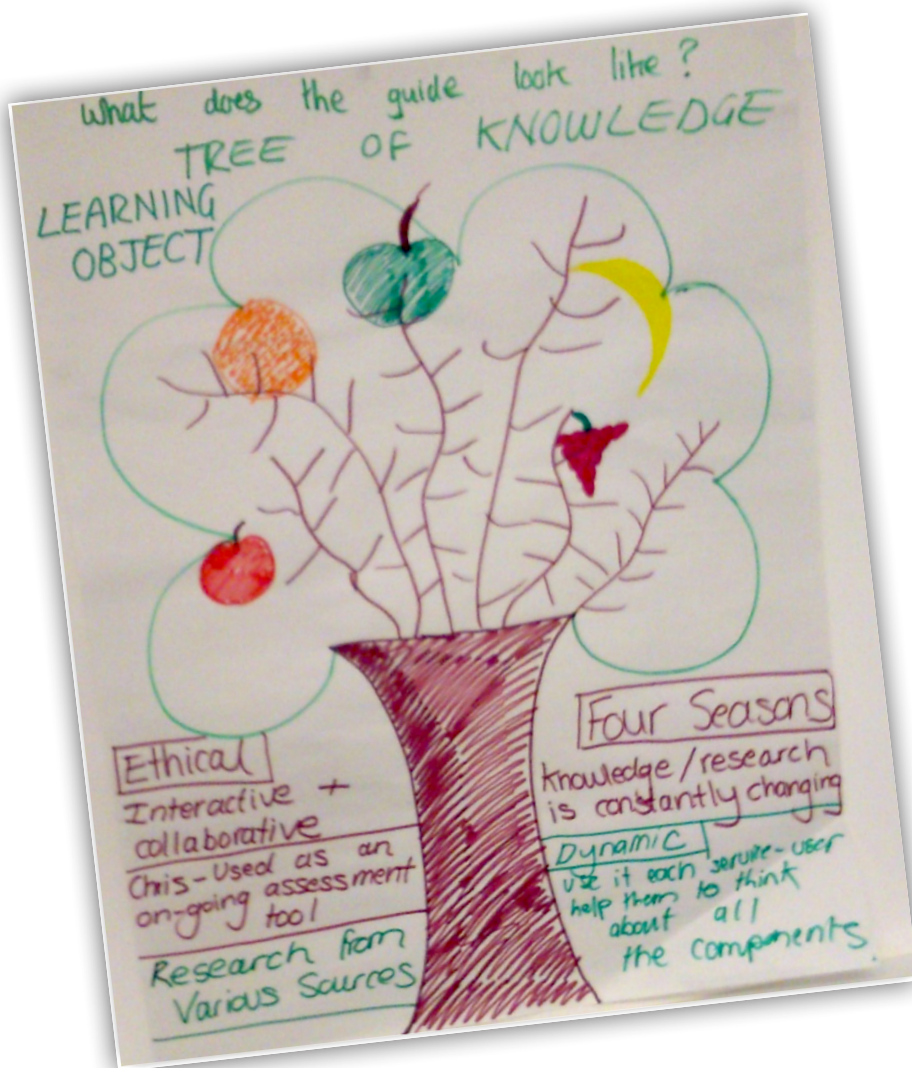 What does the guide look like?
TREE OF KNOWLEDGE
LEARNING
OBJECT
Ethical
Interactive +
collaborative
Chris-Used as an
on-going assessment
tool
Research from
Various Sources
Four Seasons
Knowledge/research
is constantly changing
Dynamic
use it each service-user
help them to think
about all
the components.